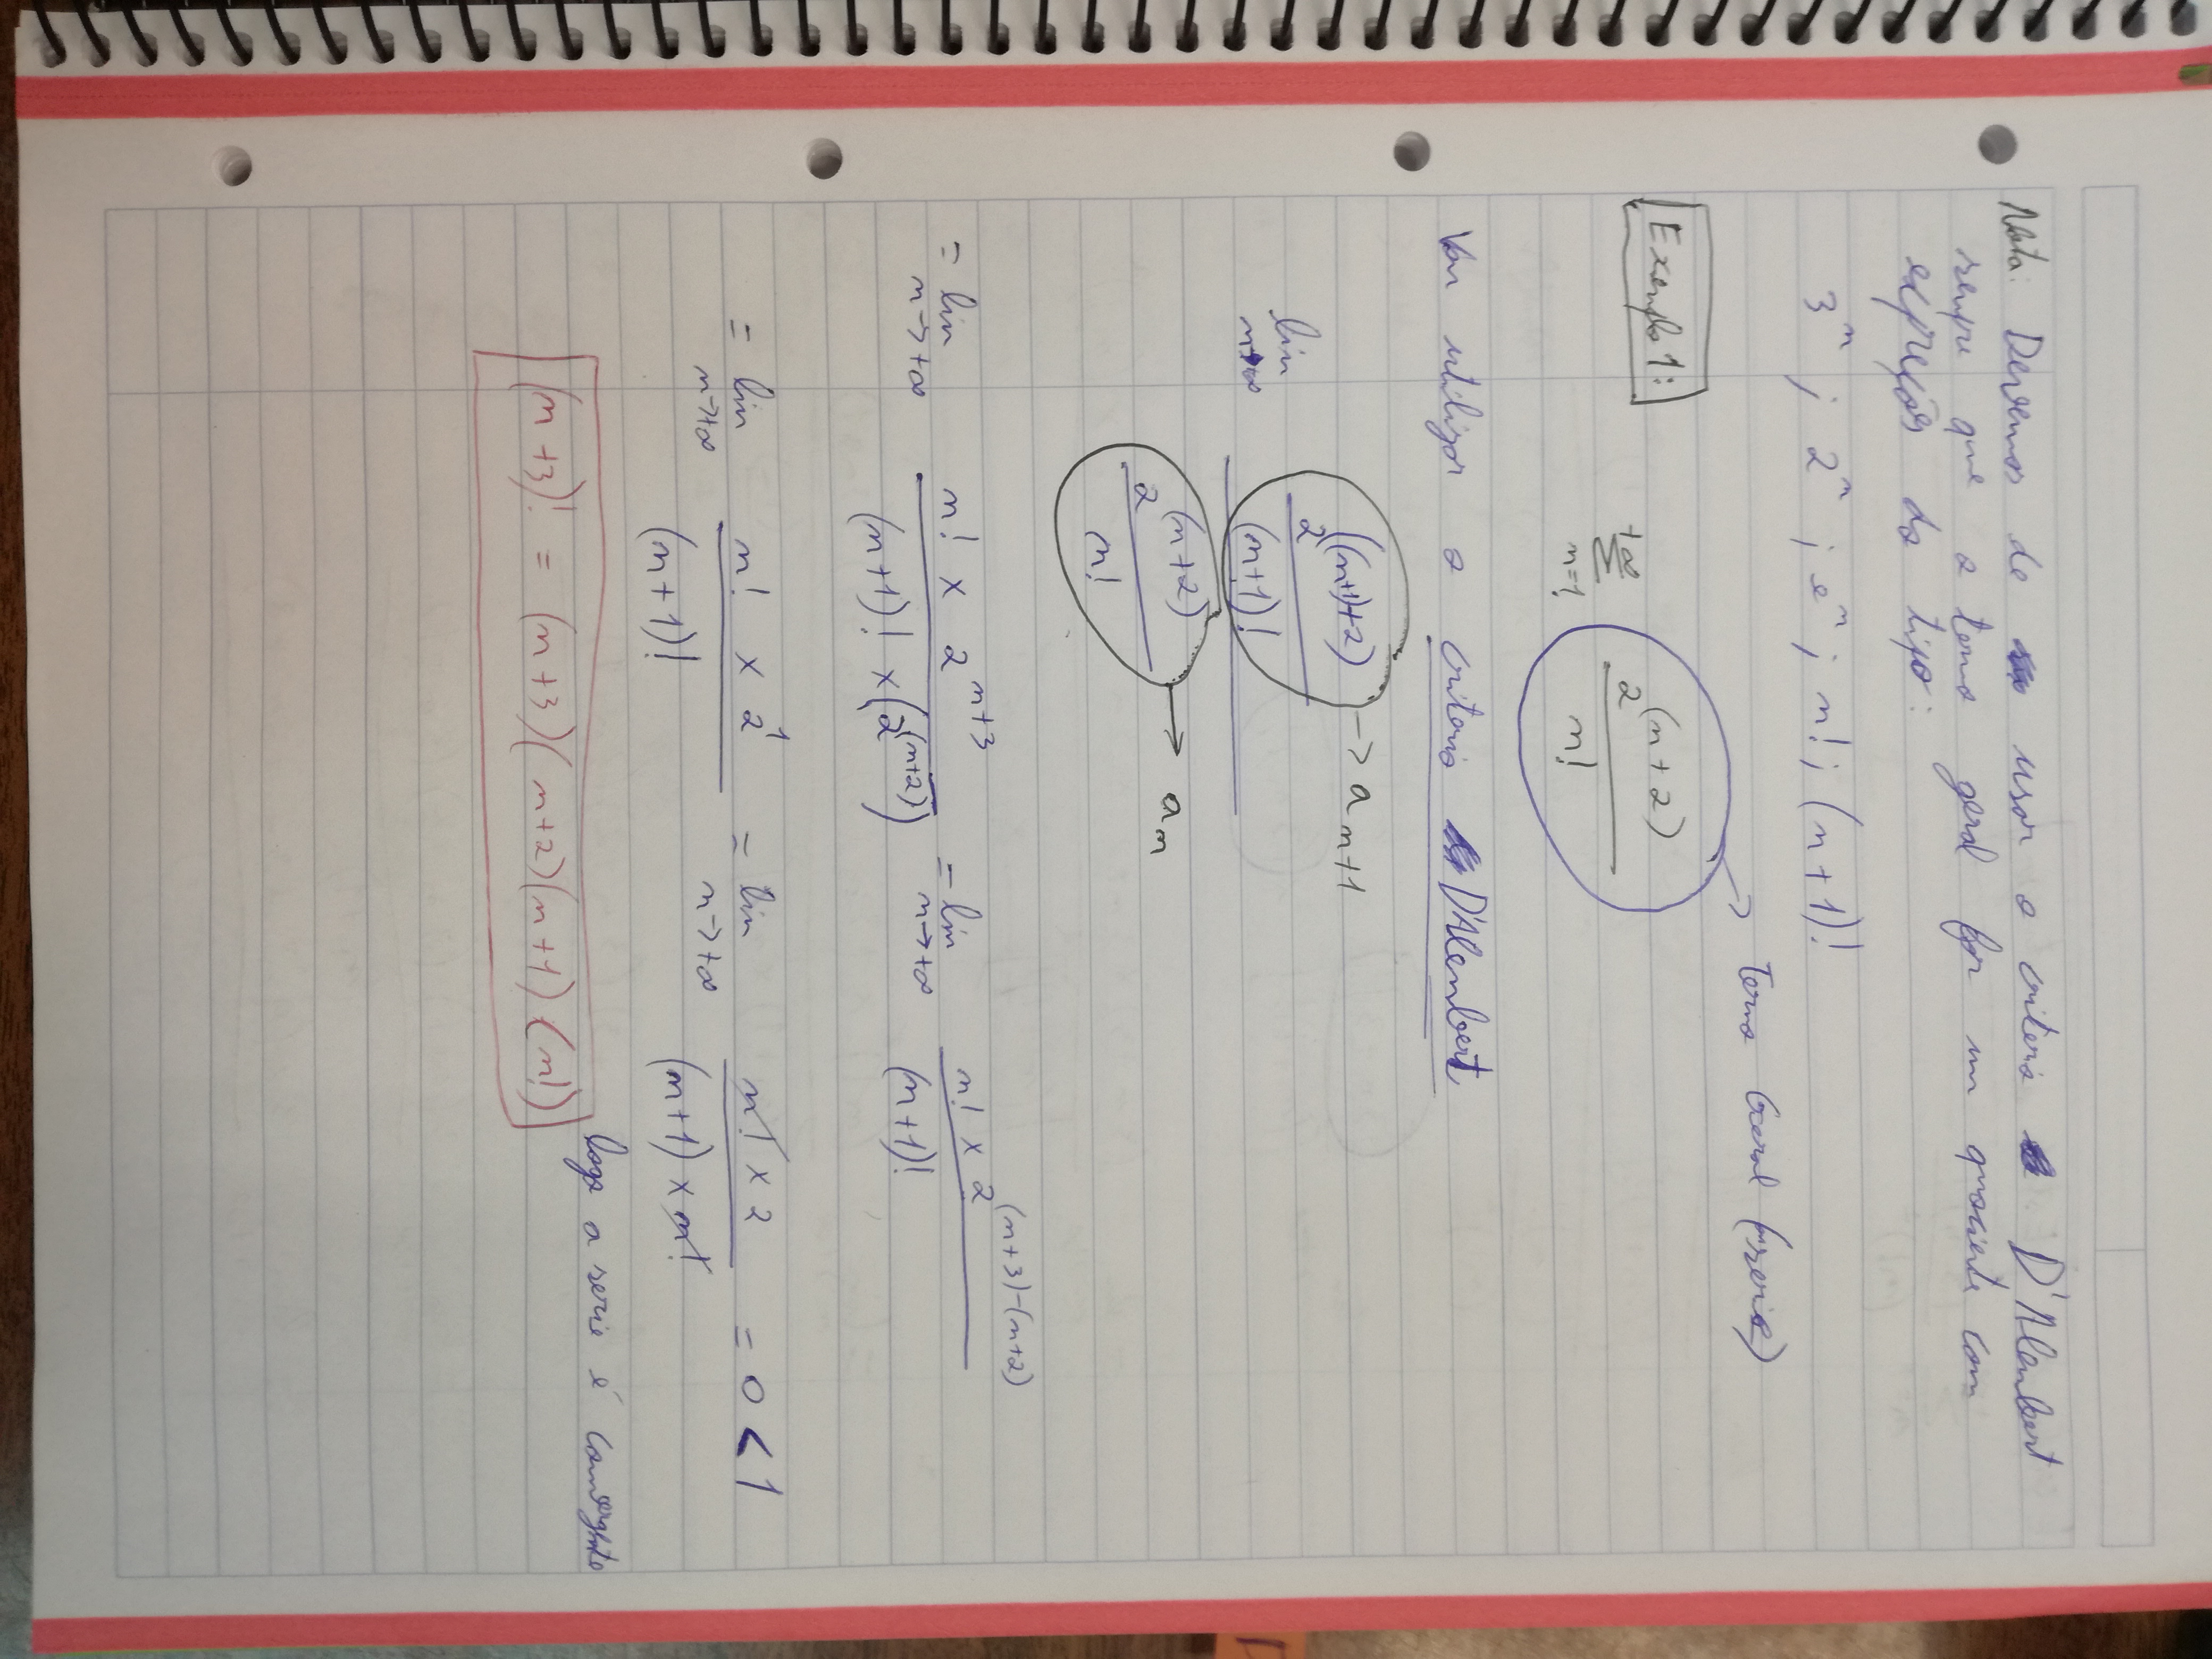 Nota: Devemos de usar o criterio D'Alembert
sempre que o termo geral for um quociente com
expressões do tipo:
3^n ; 2^n ; e^n ; n! ; (n+1)!
→ Termo Geral (serie)
Exemplo 1: +∞ Σ n=1 2^(n+2) / n!
Vou utilizar o criterio D'Alembert
lim n→+∞ (2^((n+1)+2) / (n+1)!) / (2^(n+2) / n!) → a_{n+1} → a_n
= lim n→+∞ n! × 2^{n+3} / (n+1)! × (2^{(n+2)}) = lim n→+∞ n! × 2^{(n+3)-(n+2)} / (n+1)!
= lim n→+∞ n! × 2^1 / (n+1)! = lim n→+∞ n! × 2 / (n+1) × n! = 0 < 1
logo a serie é convergente
(n+3)! = (n+3)(n+2)(n+1)(n!)